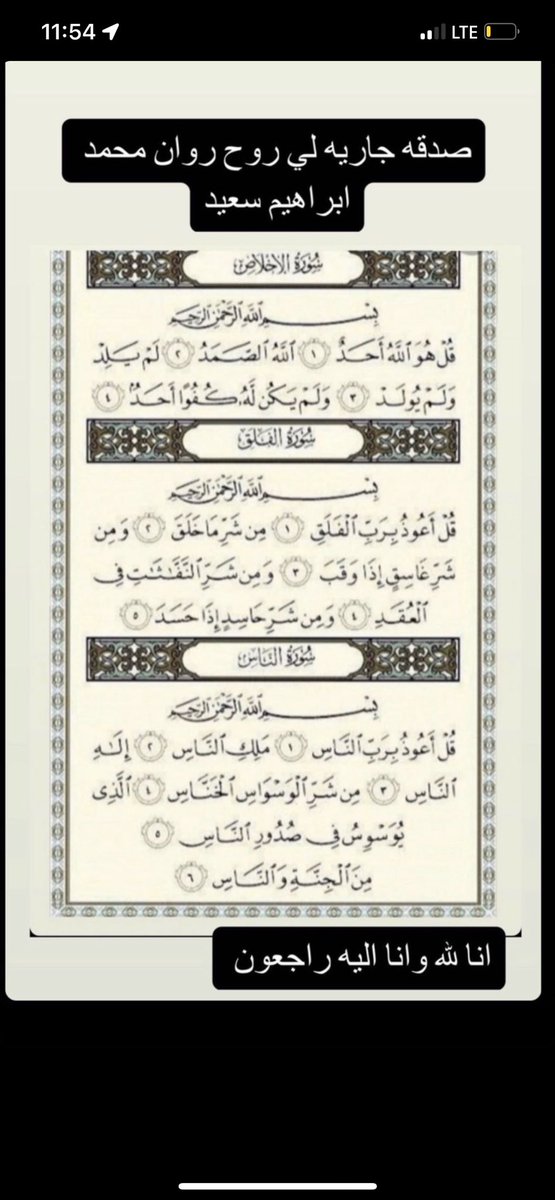 11:54
LTE
صدقه جاريه لي روح روان محمد
ابراهيم سعيد
سُورَةُ الإِخْلَاصِ
بِسْمِ اللَّهِ الرَّحْمَٰنِ الرَّحِيمِ
قُلْ هُوَ اللَّهُ أَحَدٌ ١ اللَّهُ الصَّمَدُ ٢ لَمْ يَلِدْ
وَلَمْ يُولَدْ ٣ وَلَمْ يَكُن لَّهُۥ كُفُوًا أَحَدٌۢ ٤
سُورَةُ الفَلَقِ
بِسْمِ اللَّهِ الرَّحْمَٰنِ الرَّحِيمِ
قُلْ أَعُوذُ بِرَبِّ الْفَلَقِ ١ مِن شَرِّ مَا خَلَقَ ٢ وَمِن
شَرِّ غَاسِقٍ إِذَا وَقَبَ ٣ وَمِن شَرِّ النَّفَّٰثَٰتِ فِى
الْعُقَدِ ٤ وَمِن شَرِّ حَاسِدٍ إِذَا حَسَدَ ٥
سُورَةُ النَّاسِ
بِسْمِ اللَّهِ الرَّحْمَٰنِ الرَّحِيمِ
قُلْ أَعُوذُ بِرَبِّ النَّاسِ ١ مَلِكِ النَّاسِ ٢ إِلَٰهِ
النَّاسِ ٣ مِن شَرِّ الْوَسْوَاسِ الْخَنَّاسِ ٤ الَّذِى
يُوَسْوِسُ فِى صُدُورِ النَّاسِ ٥
مِنَ الْجِنَّةِ وَالنَّاسِ ٦
انا لله وانا اليه راجعون